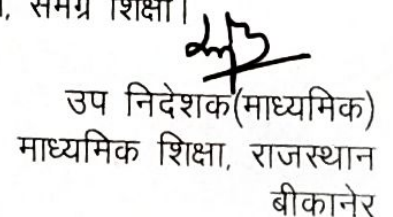 , समग्र शिक्षा।
उप निदेशक(माध्यमिक)
माध्यमिक शिक्षा, राजस्थान
बीकानेर